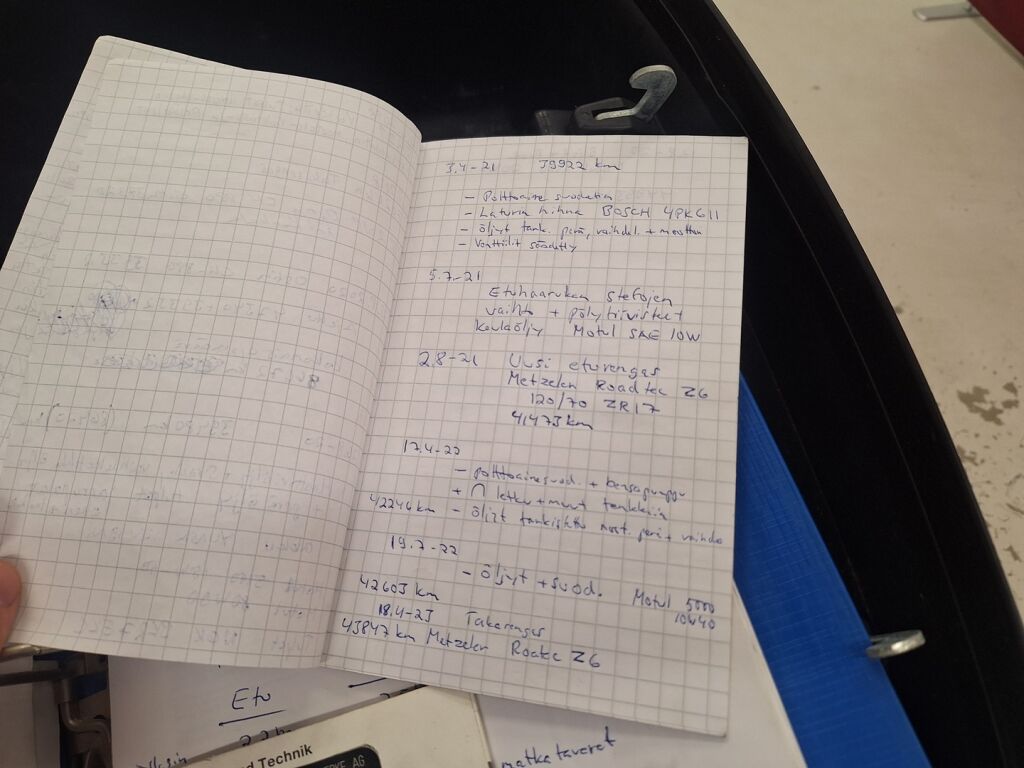 3.4-21 39922 km
- Polttoaine suodatin
- Laturin hihna BOSCH 4PK611
- öljyt tank. perä, vaihdel. + moottori
- Venttiilit säädetty
5.7-21
Etuhaarukan stefojen
vaihto + pölytiivisteet
keulaöljy Motul SAE 10W
2.8-21 Uusi eturengas
Metzeler Roadtec Z6
120/70 ZR17
41473 km
17.4-22
- polttoainesuod. + bensapumppu
+ letku + muut tankkiin
42246 km - öljyt moot. perä + vaihde
19.7-22
- öljyt + suod. Motul 5000
10W40
42603 km
18.4-23 Takarengas
43847 km Metzeler Z6
Etu
d Technik
AG
matkatavarat